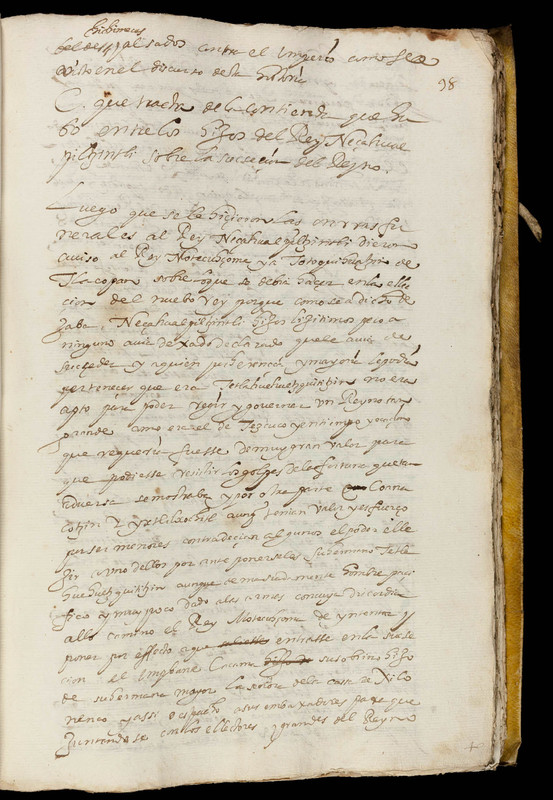 chichimecas
al sados contra el ymperio como se a
visto en el discurso de la historia
98
C. que trata de la contienda que hu
bo entre los hijos del Rey Neçahual
pilçintli sobre la suceçion del Reyno.
Luego que se le hiçieron las onrras fu
nerales al Rey Neçahualpilçintli dieron
aviso al Rey Moteczuçoma y a Totoquihuatzin de
Tlacopan sobre lo que se debia haçer en la ellec
cion del nuebo rey porque como se a dicho de
jaba Neçahualpilçintli hijos legitimos pero a
ninguno avia dexado declarado que le avia de
suceder y a quien por herencia y mayoria le podia
pertenecer que era Tetlahuehuetzquititzin no era
apto para poder regir y governar un Reyno tan
grande como era el de Tezcuco y en tiempo
que requeria fuesse de muy gran valor para
que pudiesse resistir los golpes de la fortuna que tan
adversa se mostraba y por otra parte Coana
cotzin y yxtlilxochitl aunq tenian valor y esfuerço
por ser menores contradecian algunos el poder elle
gir a uno dellos por anteponerseles su hermano Tetla
huehuetzquititzin aunque demasiadamente hombre paci
fico y muy poco dado a las armas con cuya discordia
allo camino el Rey Moteczuçoma de yntentar y
poner por effecto a que entrasse en la suce
cion el ynfante Cacama su sobrino hijo
de su hermana mayor la señora de la casa de Xilo
menco y assi despacho a sus embaxadores para que
juntandose con los ellectores y grandes del Reyno